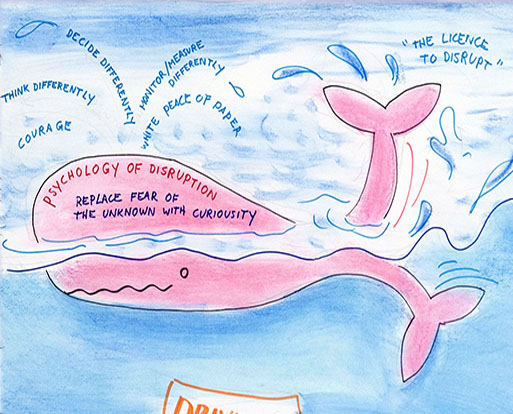 "THE LICENCE
TO DISRUPT"
DECIDE DIFFERENTLY
MONITOR/MEASURE
DIFFERENTLY
THINK DIFFERENTLY
WHITE PEACE OF PAPER
COURAGE
PSYCHOLOGY OF DISRUPTION
REPLACE FEAR OF
THE UNKNOWN WITH CURIOUSITY